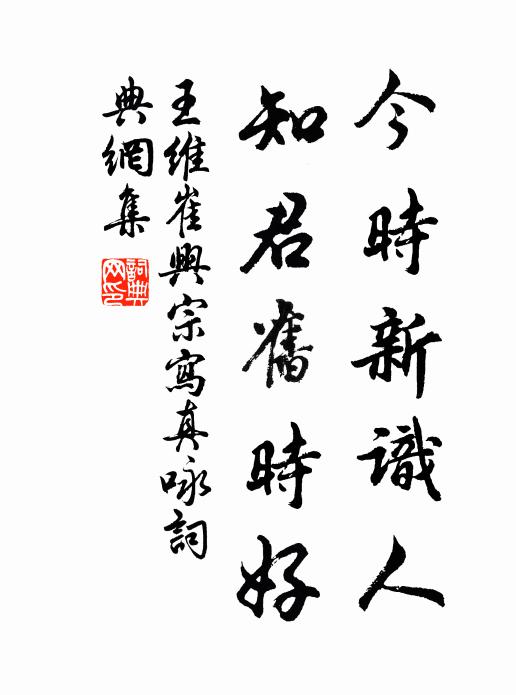 今時新識人
知君舊時好
王維崔興宗寫真咏詞
典網集
詞典网印